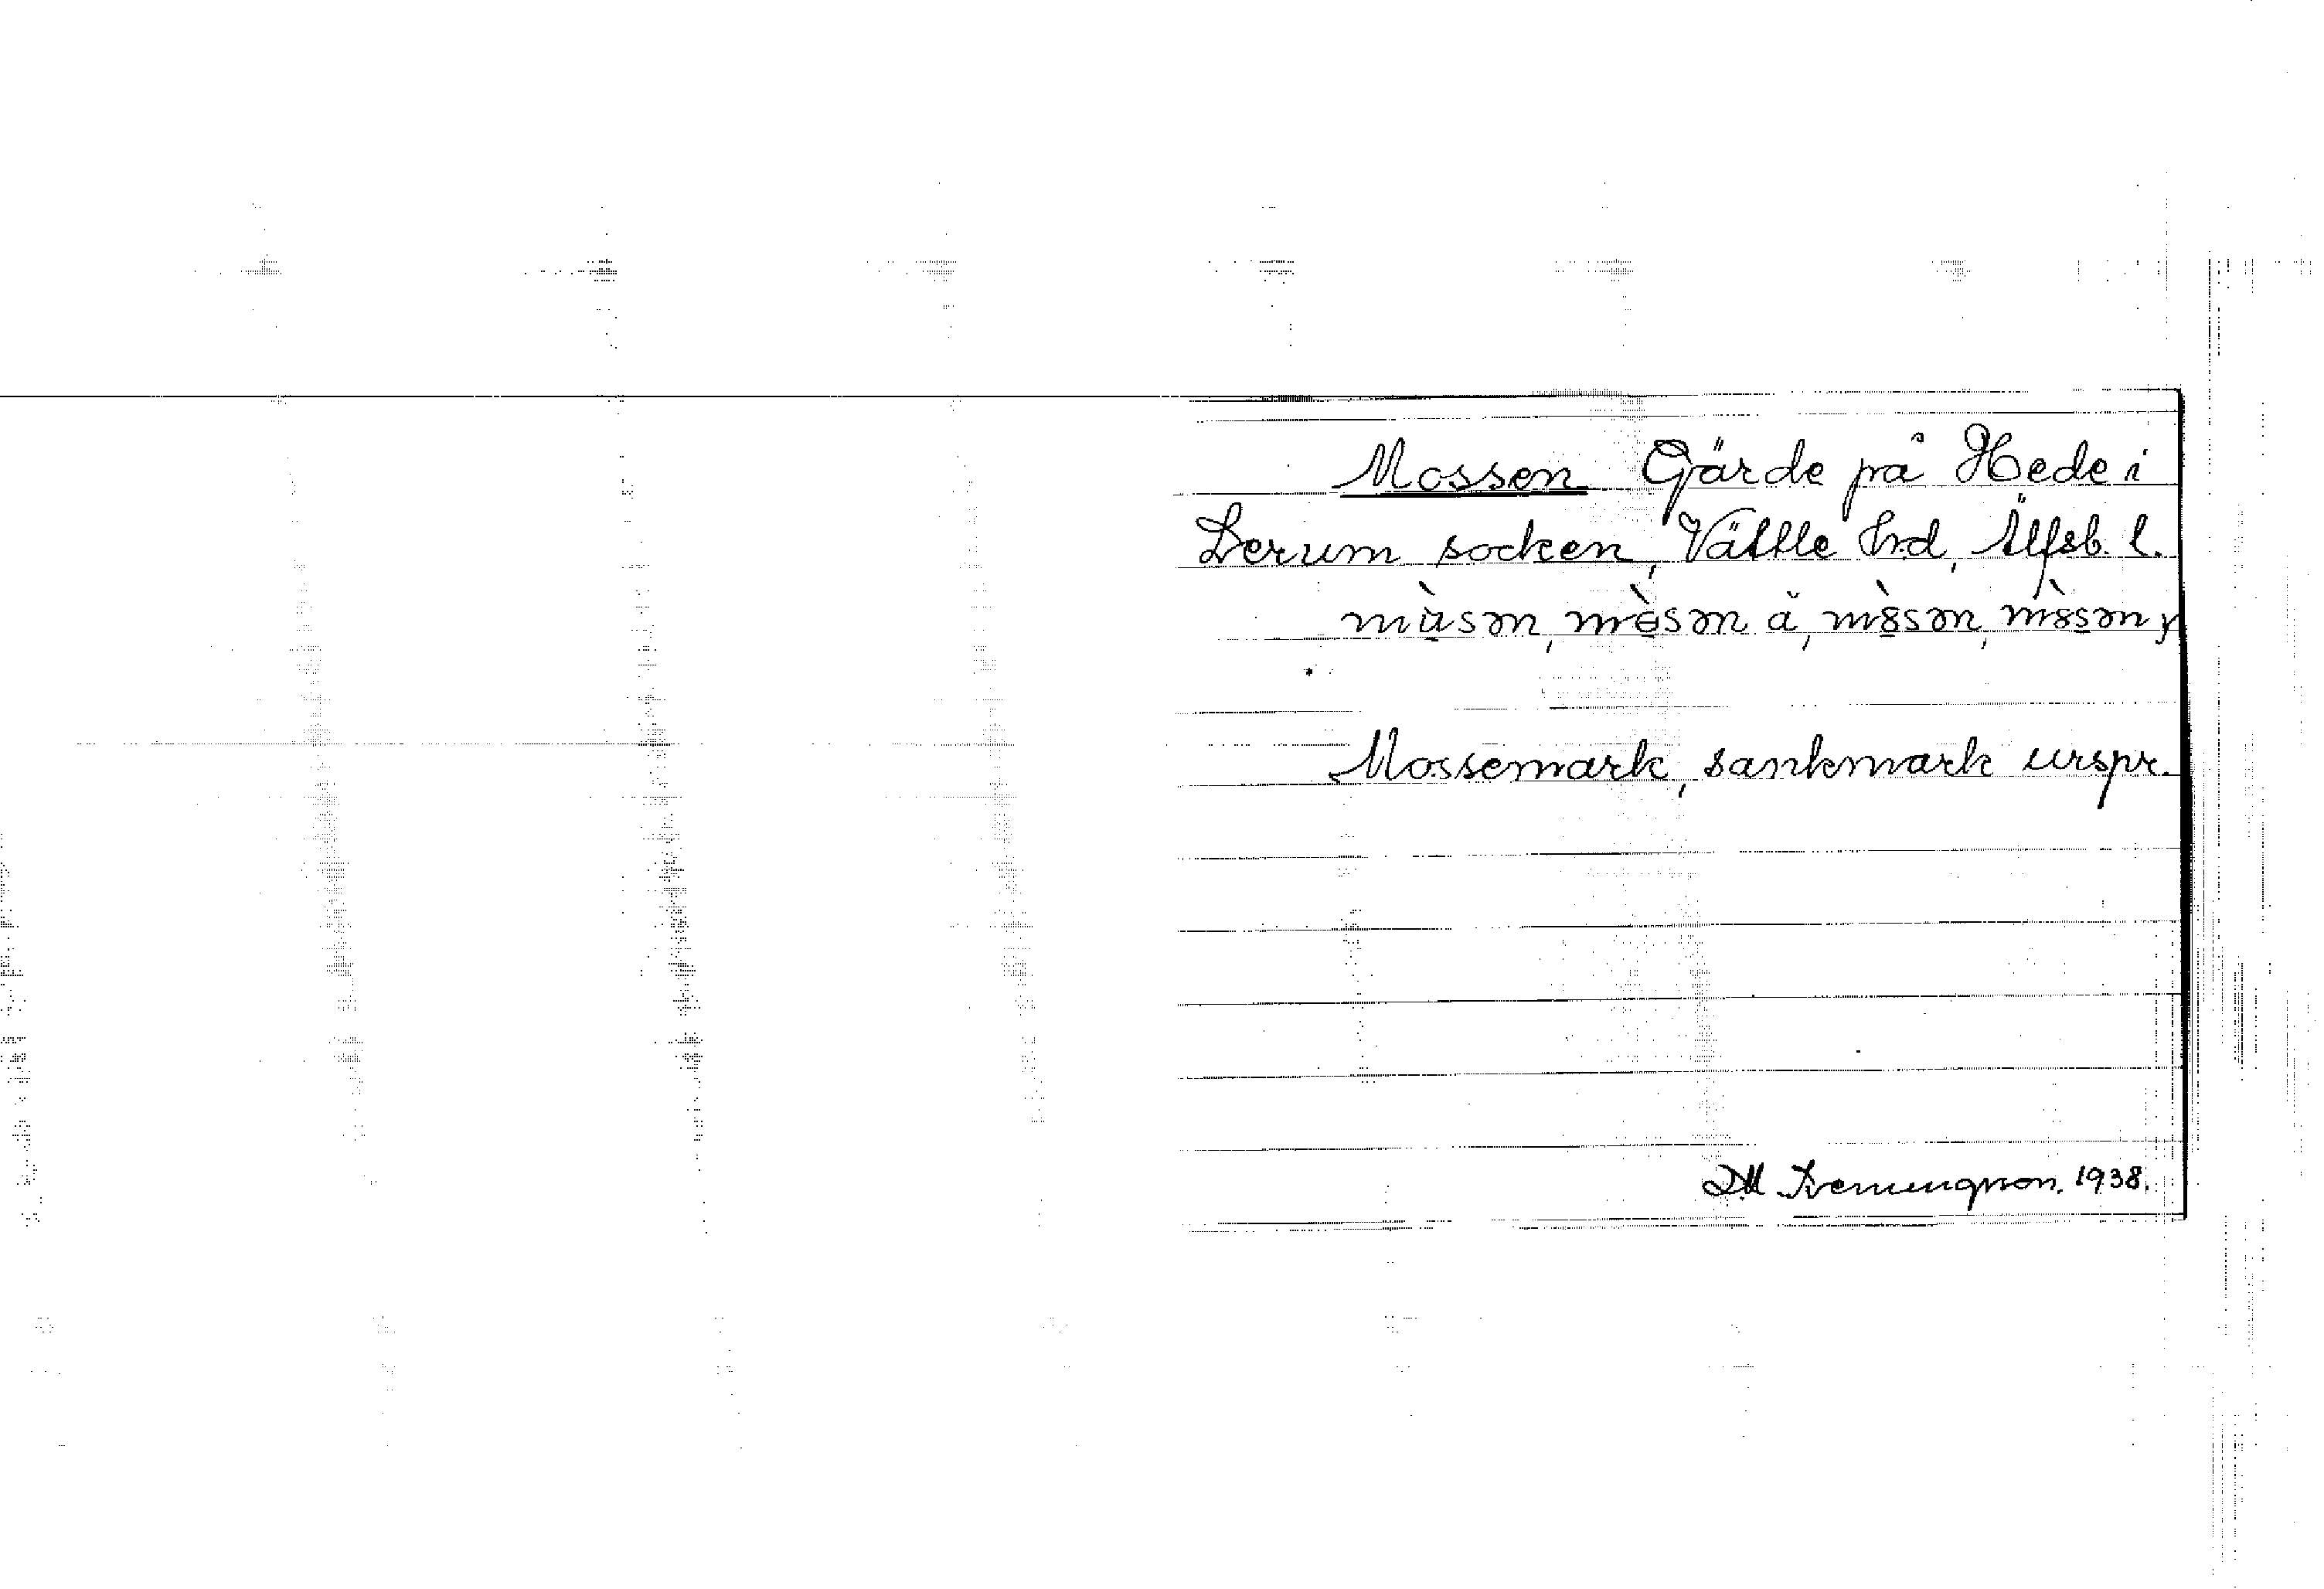 Mossen Gärde på Hede i
Lerum socken, Vättle hrd, Älfsb. l.
mùsən, mòsən ä, mȣ̀sən, mȣ̀sən y
Mossemark, sankmark urspr.
DM. 1938.